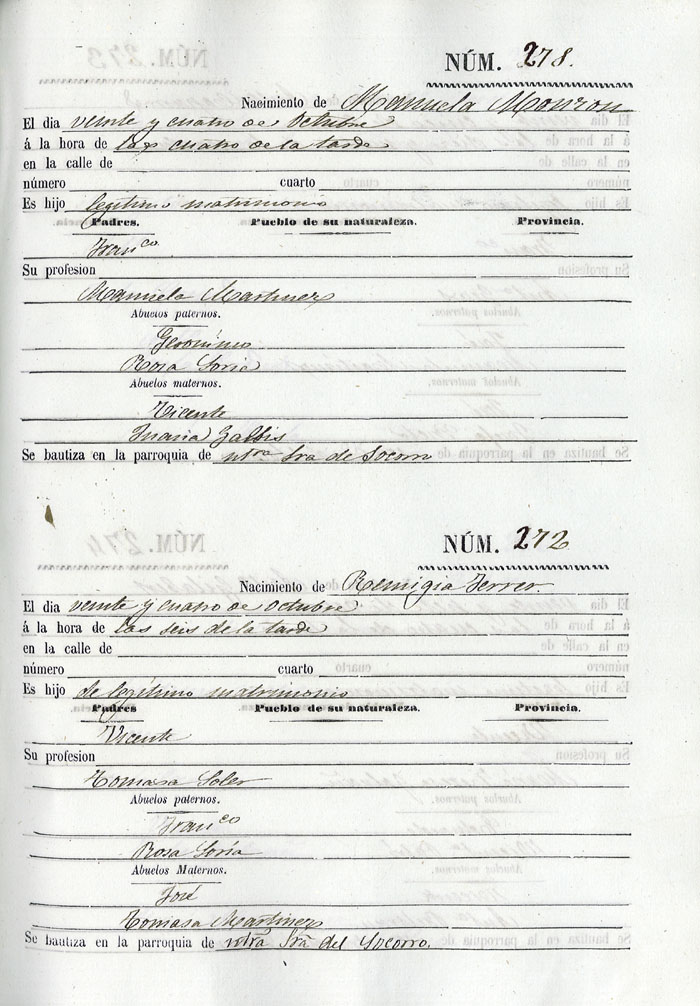 NÚM. 278.
Nacimiento de Manuela Monzon
El dia veinte y cuatro de Octubre
á la hora de las cuatro de la tarde
en la calle de
número cuarto
Es hijo legítimo matrimonio
Padres. Pueblo de su naturaleza. Provincia.
Franco
Su profesion
Manuela Martinez
Abuelos paternos.
Geronimo
Rosa Soria
Abuelos maternos.
Vicente
Maria
Se bautiza en la parroquia de ntra Sra de Socorro
NÚM. 272
Nacimiento de Remigia Ferrer.
El dia veinte y cuatro de Octubre
á la hora de las seis de la tarde
en la calle de
número cuarto
Es hijo de legítimo matrimonio
Padres Pueblo de su naturaleza. Provincia.
Vicente
Su profesion
Tomasa Soler
Abuelos paternos.
Franco
Rosa Soría
Abuelos Maternos.
José
Tomasa Martinez
Se bautiza en la parroquia de ntra Sra del Socorro.